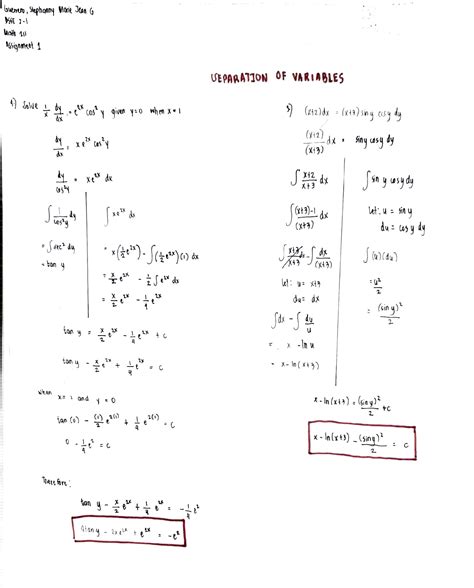 Guerrero, Stephanny Marie Jean G
BSCE 2-1
Math 211
Assignment 1
SEPARATION OF VARIABLES
1) Solve 1/x dy/dx = e^2x cos²y given y=0 when x=1
dy/dx = x e^2x cos²y
dy/cos²y = x e^2x dx
∫ 1/cos²y dy | ∫ x e^2x dx
= ∫ sec² dy | = x(1/2 e^2x) - ∫(1/2 e^2x)(1) dx
= tan y | = x/2 e^2x - 1/2 ∫ e^2x dx
= x/2 e^2x - 1/4 e^2x
tan y = x/2 e^2x - 1/4 e^2x + C
tan y - x/2 e^2x + 1/4 e^2x = C
when x = 1 and y = 0
tan (0) - (1)/2 e^2(1) + 1/4 e^2(1) = C
0 - 1/4 e² = C
Therefore:
tan y - x/2 e^2x + 1/4 e^2x = -1/4 e²
4tan y - 2xe^2x + e^2x = -e²
(x+2)dx = (x+3) sin y cos y dy
(x+2)/(x+3) dx = sin y cos y dy
∫ x+2/x+3 dx | ∫ sin y cos y dy
∫ (x+3)-1/(x+3) dx | let: u = sin y
du = cos y dy
∫ x+3/x+3 dx - ∫ dx/(x+3) | ∫ (u)(du)
let: u = x+3 | = u²/2
du = dx
∫dx - ∫ du/u | = (sin y)²/2
= x - ln u
= x - ln(x+3)
x - ln(x+3) = (sin y)²/2 + C
x - ln(x+3) - (sin y)²/2 = C